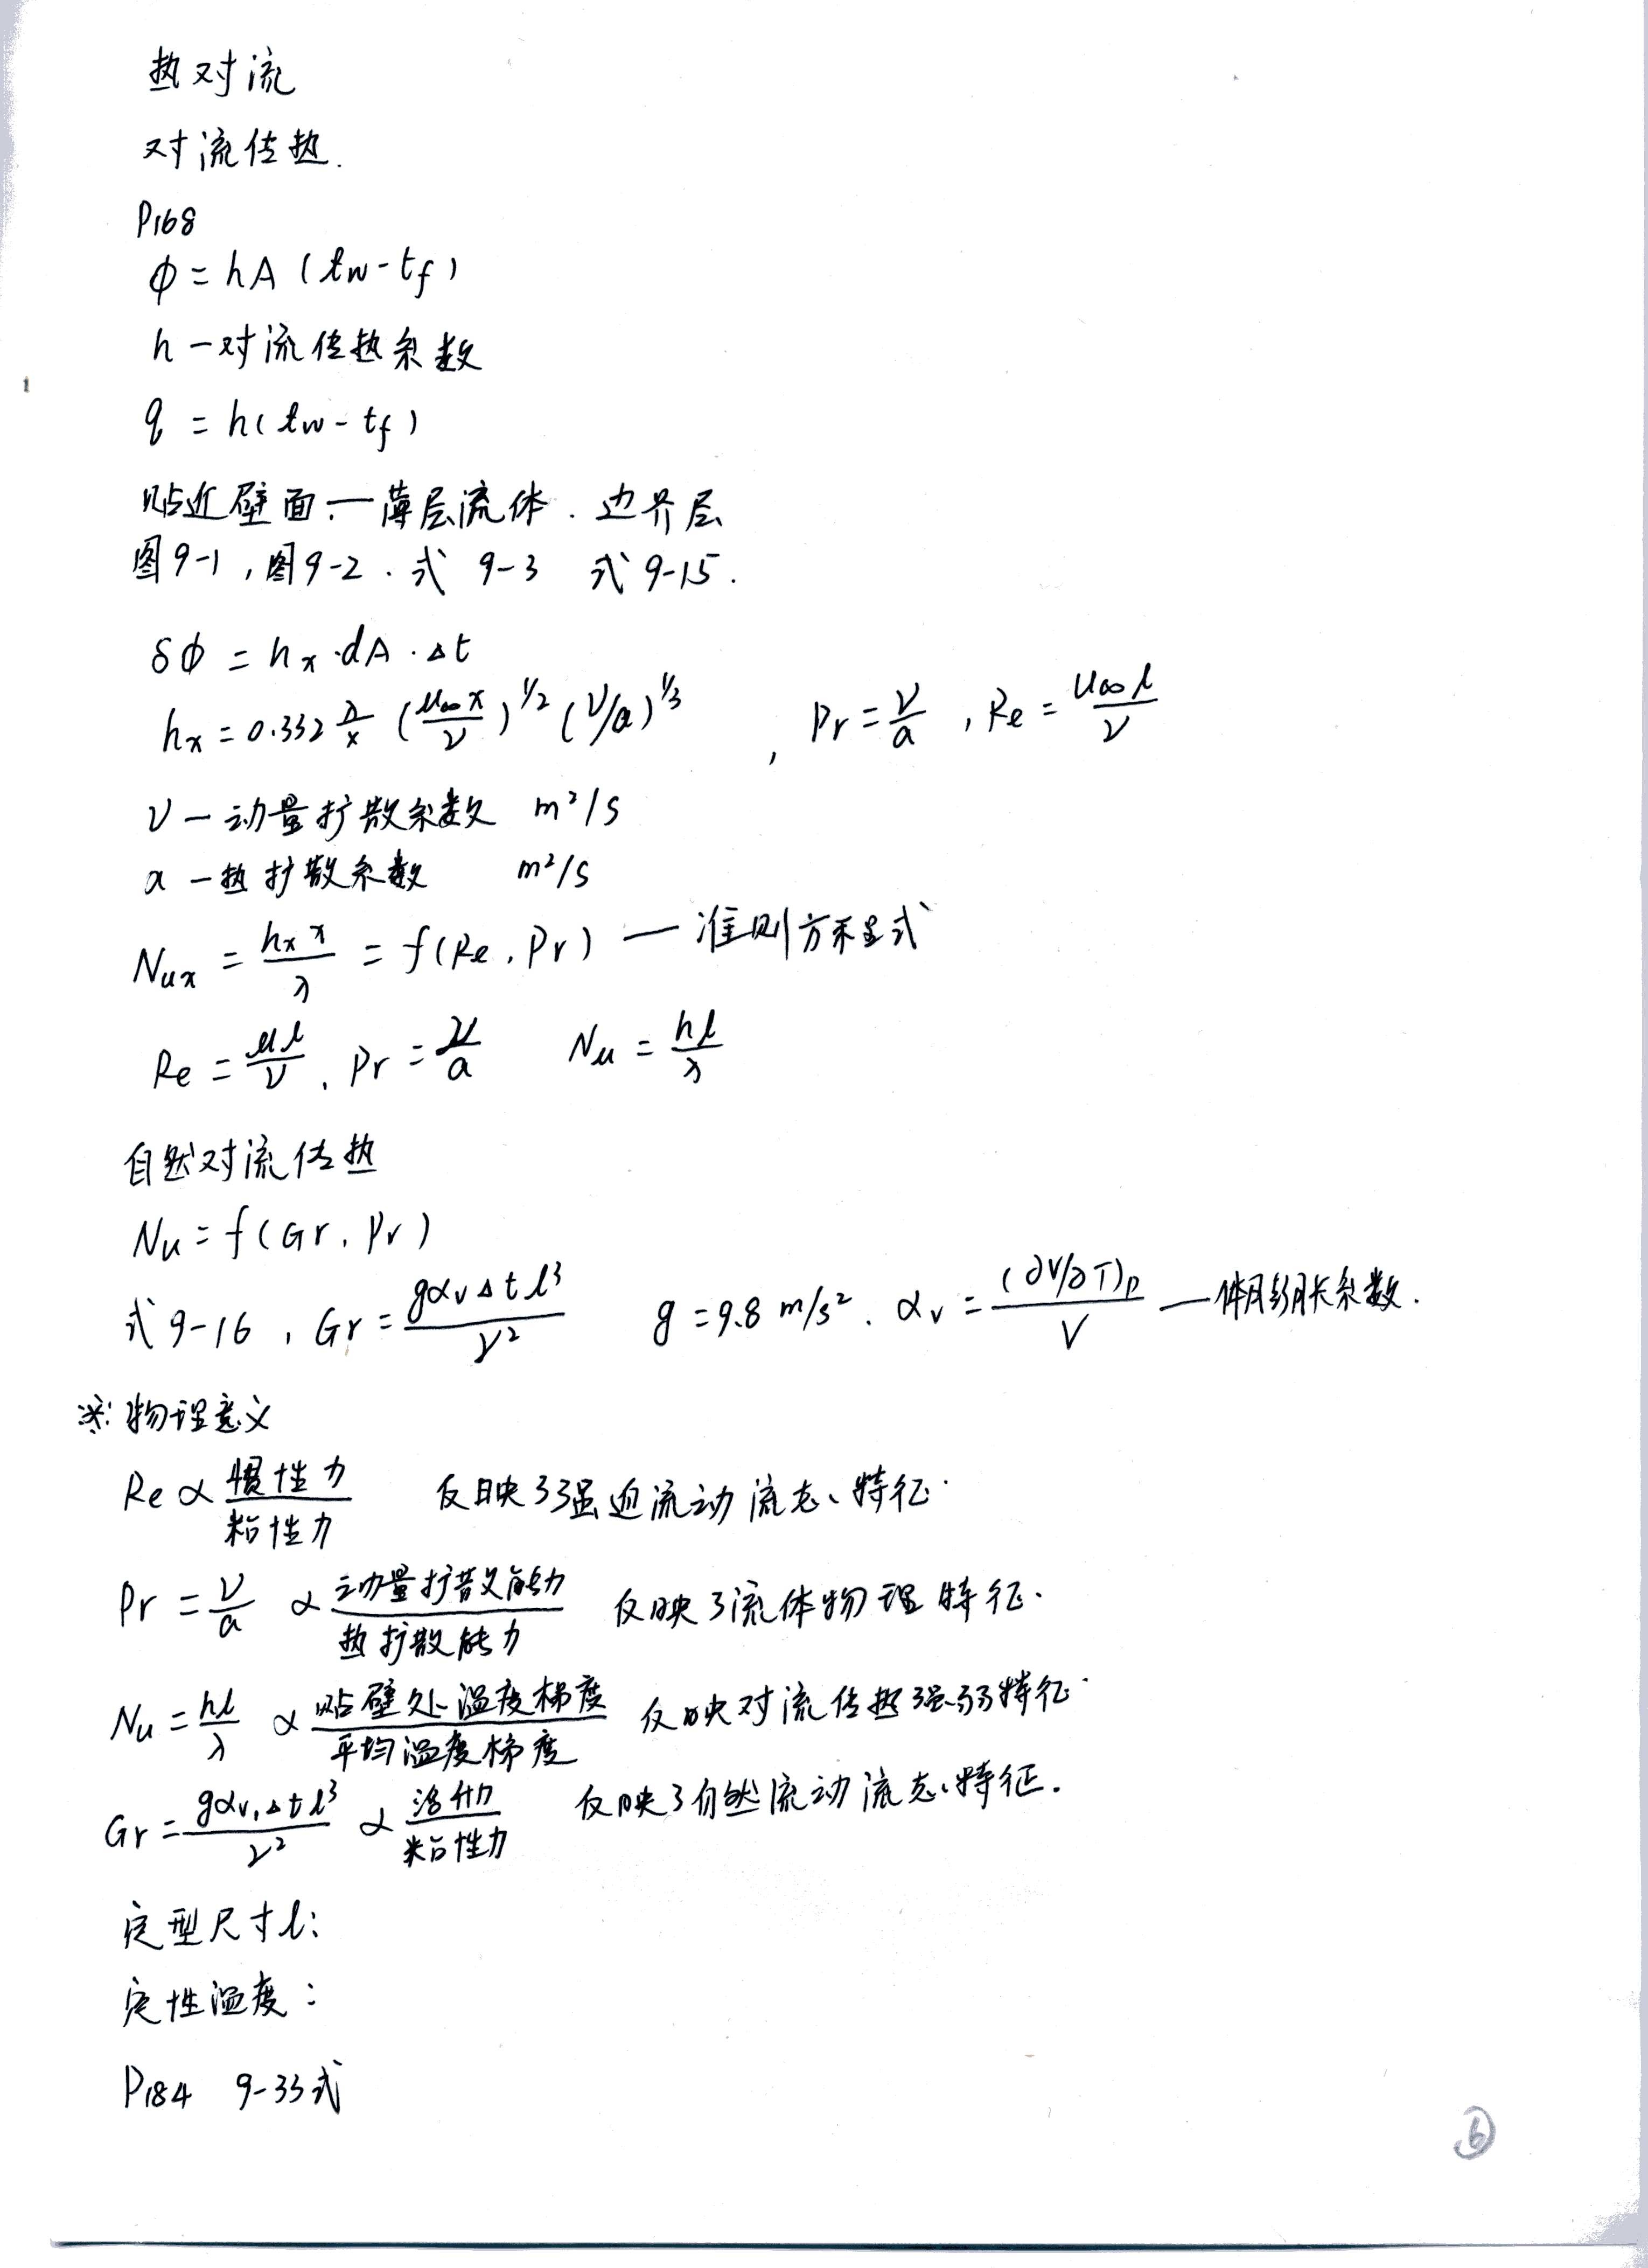 热对流
对流传热.
P168
φ = hA (tw - tf)
h — 对流传热系数
q = h(tw - tf)
贴近壁面·一薄层流体. 边界层
图9-1, 图9-2. 式 9-3 式 9-15.
δφ = hx·dA·Δt
hx = 0.332 λ/x (u∞x/ν)^1/2 (ν/a)^1/3 , Pr = ν/a , Re = u∞l/ν
ν — 动量扩散系数 m²/s
a — 热扩散系数 m²/s
Nux = hx x/λ = f(Re, Pr) — 准则方程式
Re = ul/ν, Pr = ν/a Nu = hl/λ
自然对流传热
Nu = f(Gr, Pr)
式 9-16, Gr = gαvΔtl³/ν² g = 9.8 m/s². αv = (∂V/∂T)p/V — 体膨胀系数.
※ 物理意义
Re ∝ 惯性力/粘性力 反映了强迫流动流态特征.
Pr = ν/a ∝ 动量扩散能力/热扩散能力 反映了流体物理特征.
Nu = hl/λ ∝ 贴壁处温度梯度/平均温度梯度 反映对流传热强弱特征.
Gr = gαvΔtl³/ν² ∝ 浮升力/粘性力 反映了自然流动流态特征.
定型尺寸l:
定性温度:
P184 9-33式
⑥